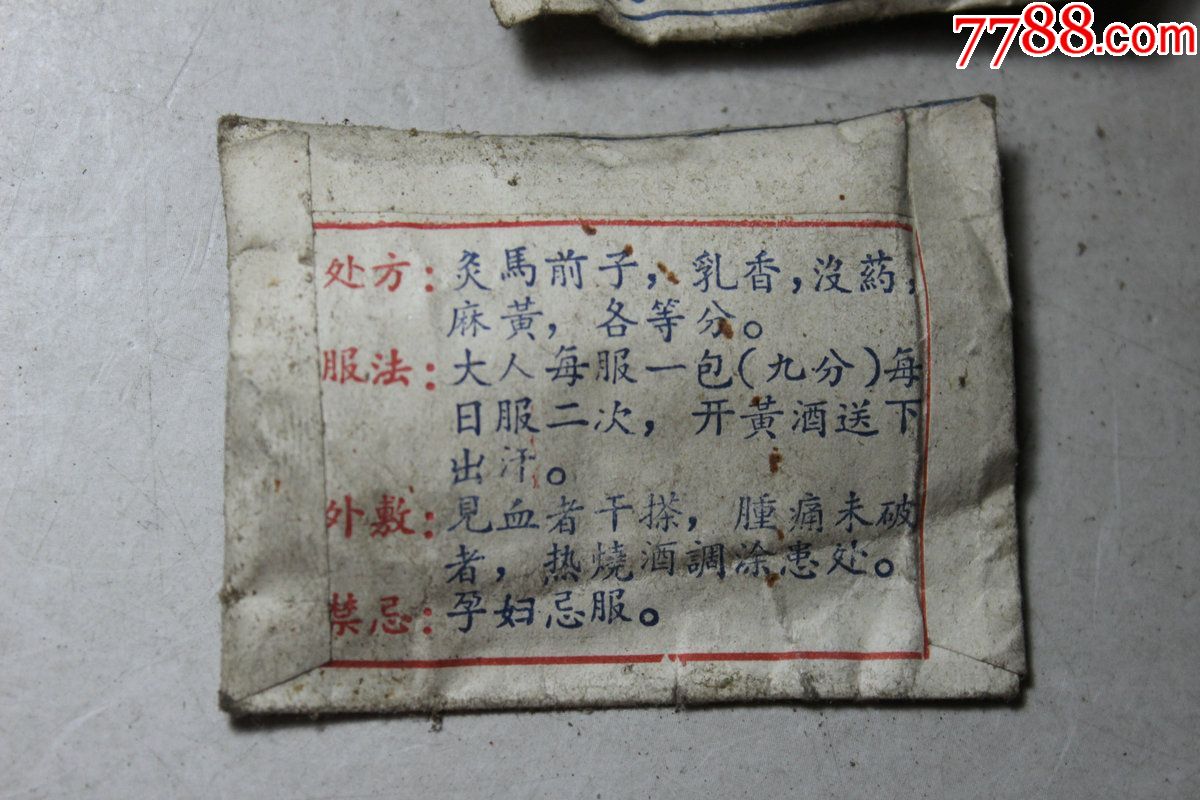 7788.com
处方：灸馬前子，乳香，沒葯，
麻黃，各等分。
服法：大人每服一包(九分)每
日服二次，开黃酒送下
出汗。
外敷：見血者干搽，腫痛未破
者，热燒酒調涂患处。
禁忌：孕妇忌服。